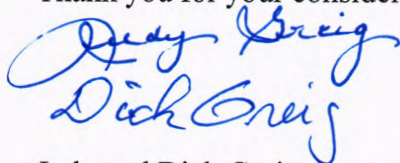 Thank you for your consider
Judy Greig
Dick Greig